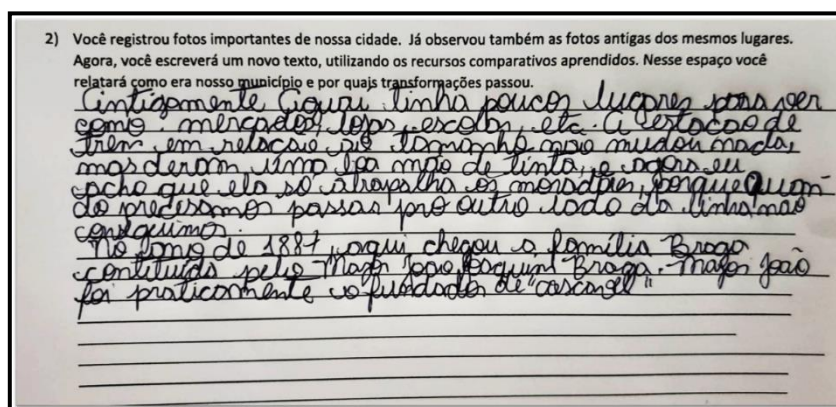 2) Você registrou fotos importantes de nossa cidade. Já observou também as fotos antigas dos mesmos lugares.
Agora, você escreverá um novo texto, utilizando os recursos comparativos aprendidos. Nesse espaço você
relatará como era nosso município e por quais transformações passou.
Antigamente Aguaí tinha poucos lugares para ver
como mercados, lojas, escolas, etc. A estacão de
trem em relacão ao tamanho não mudou nada,
mas deram uma boa mão de tinta, e agora eu
acho que ela só atrapalha os moradores, porque quan-
do precisamos passar pro outro lado da linha não
conseguimos.
No ano de 1887, aqui chegou a família Braga
contituída pelo Major João Joaquim Braga. Major João
foi praticamente o fundador de "cascavel"